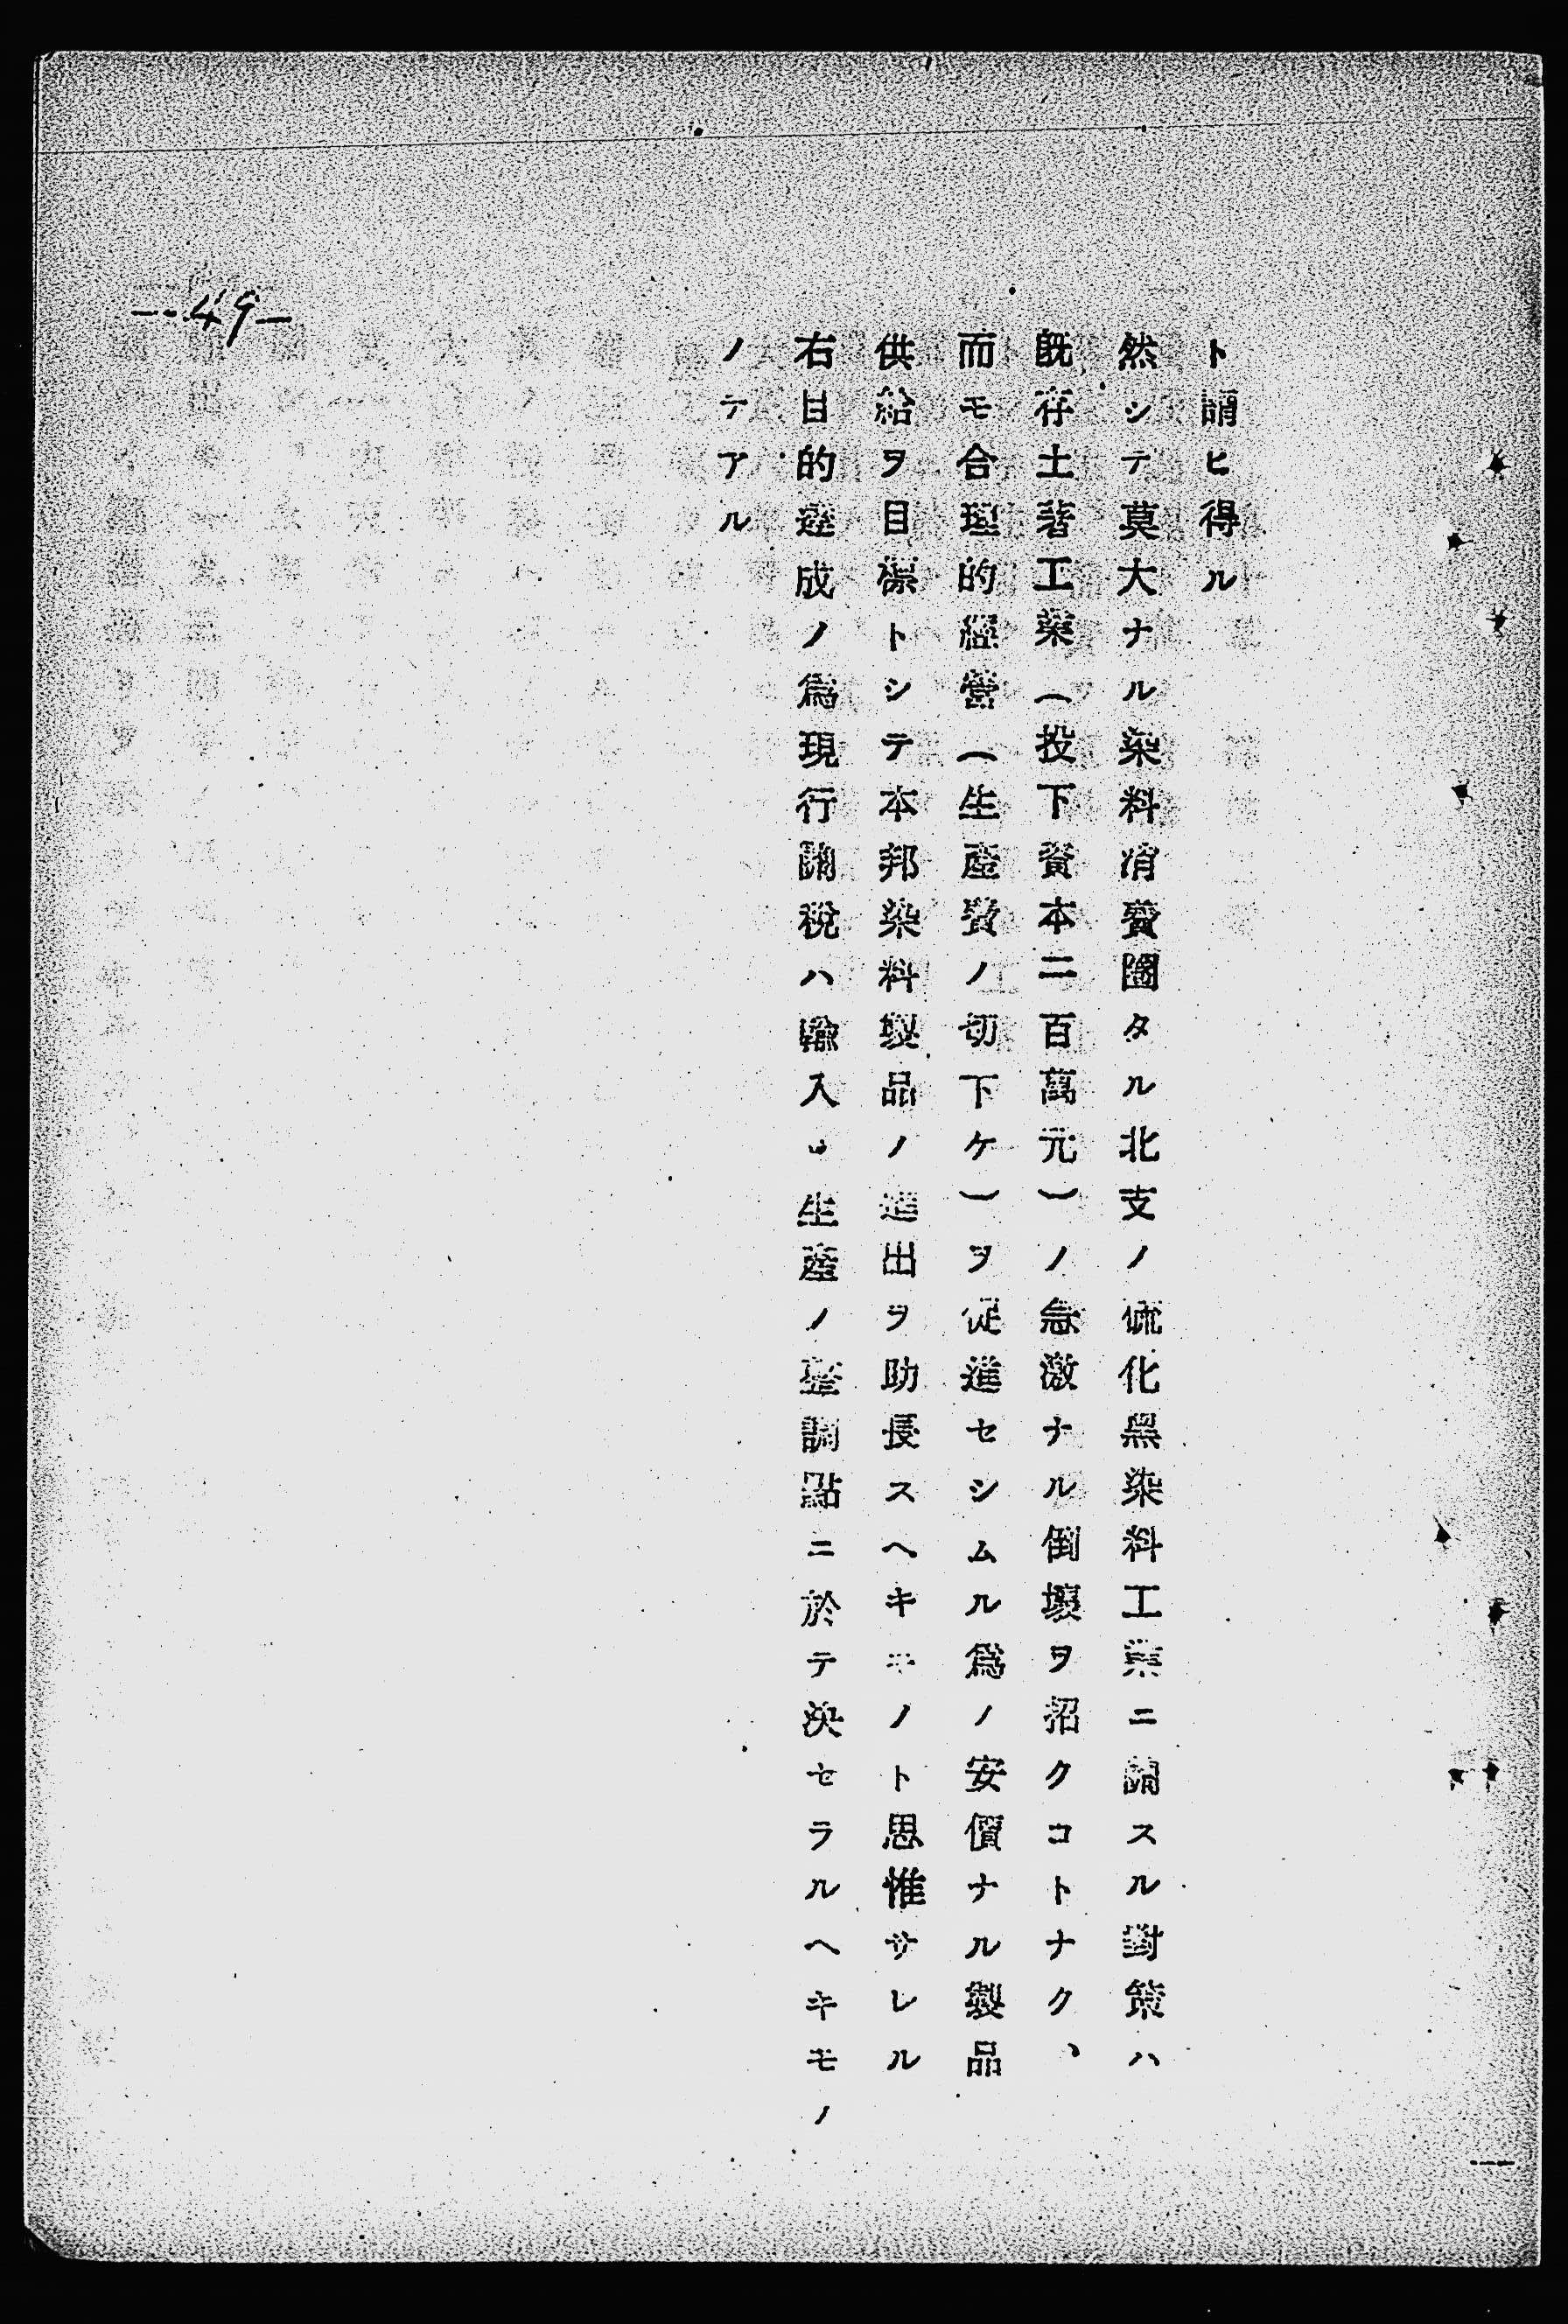 ト謂ヒ得ル
然シテ莫大ナル染料消費國タル北支ノ硫化黑染料工業ニ關スル對策ハ
既存土著工業（投下資本二百萬元）ノ急激ナル倒壞ヲ招クコトナク、
而モ合理的經營（生產費ノ切下ケ）ヲ促進セシムル爲ノ安價ナル製品
供給ヲ目標トシテ本邦染料製品ノ進出ヲ助長スヘキモノト思惟サレル
右目的達成ノ爲現行關稅ハ輸入 生產ノ整調點ニ於テ決セラルヘキモノ
ノテアル
—49—